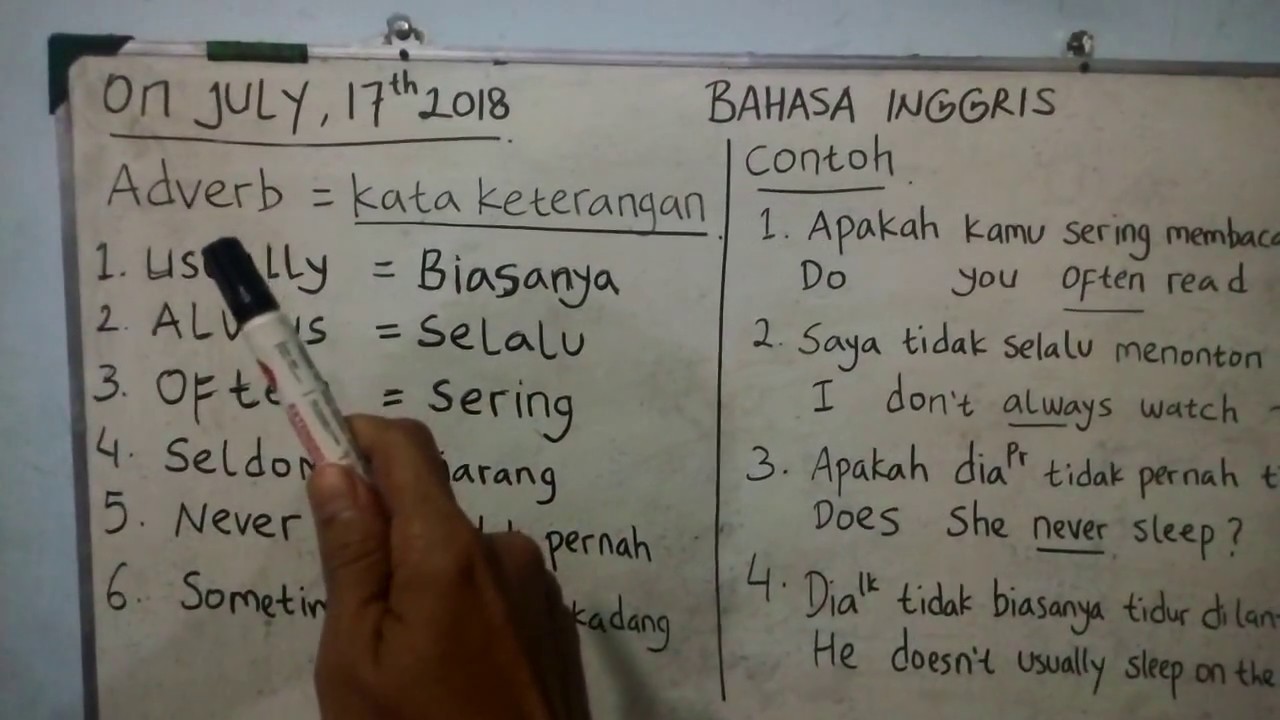 On JULY, 17th 2018
BAHASA INGGRIS
Adverb = kata keterangan.
1. = Biasanya
2. = Selalu
3. = Sering
4. jarang
5. Never pernah
6. kadang
Contoh.
1. Apakah kamu sering
Do you often read
2. Saya tidak selalu menonton
I don't always watch
3. Apakah dia Pr tidak pernah
Does She never sleep?
4. Dia lk tidak biasanya tidur di
He doesn't usually sleep on the